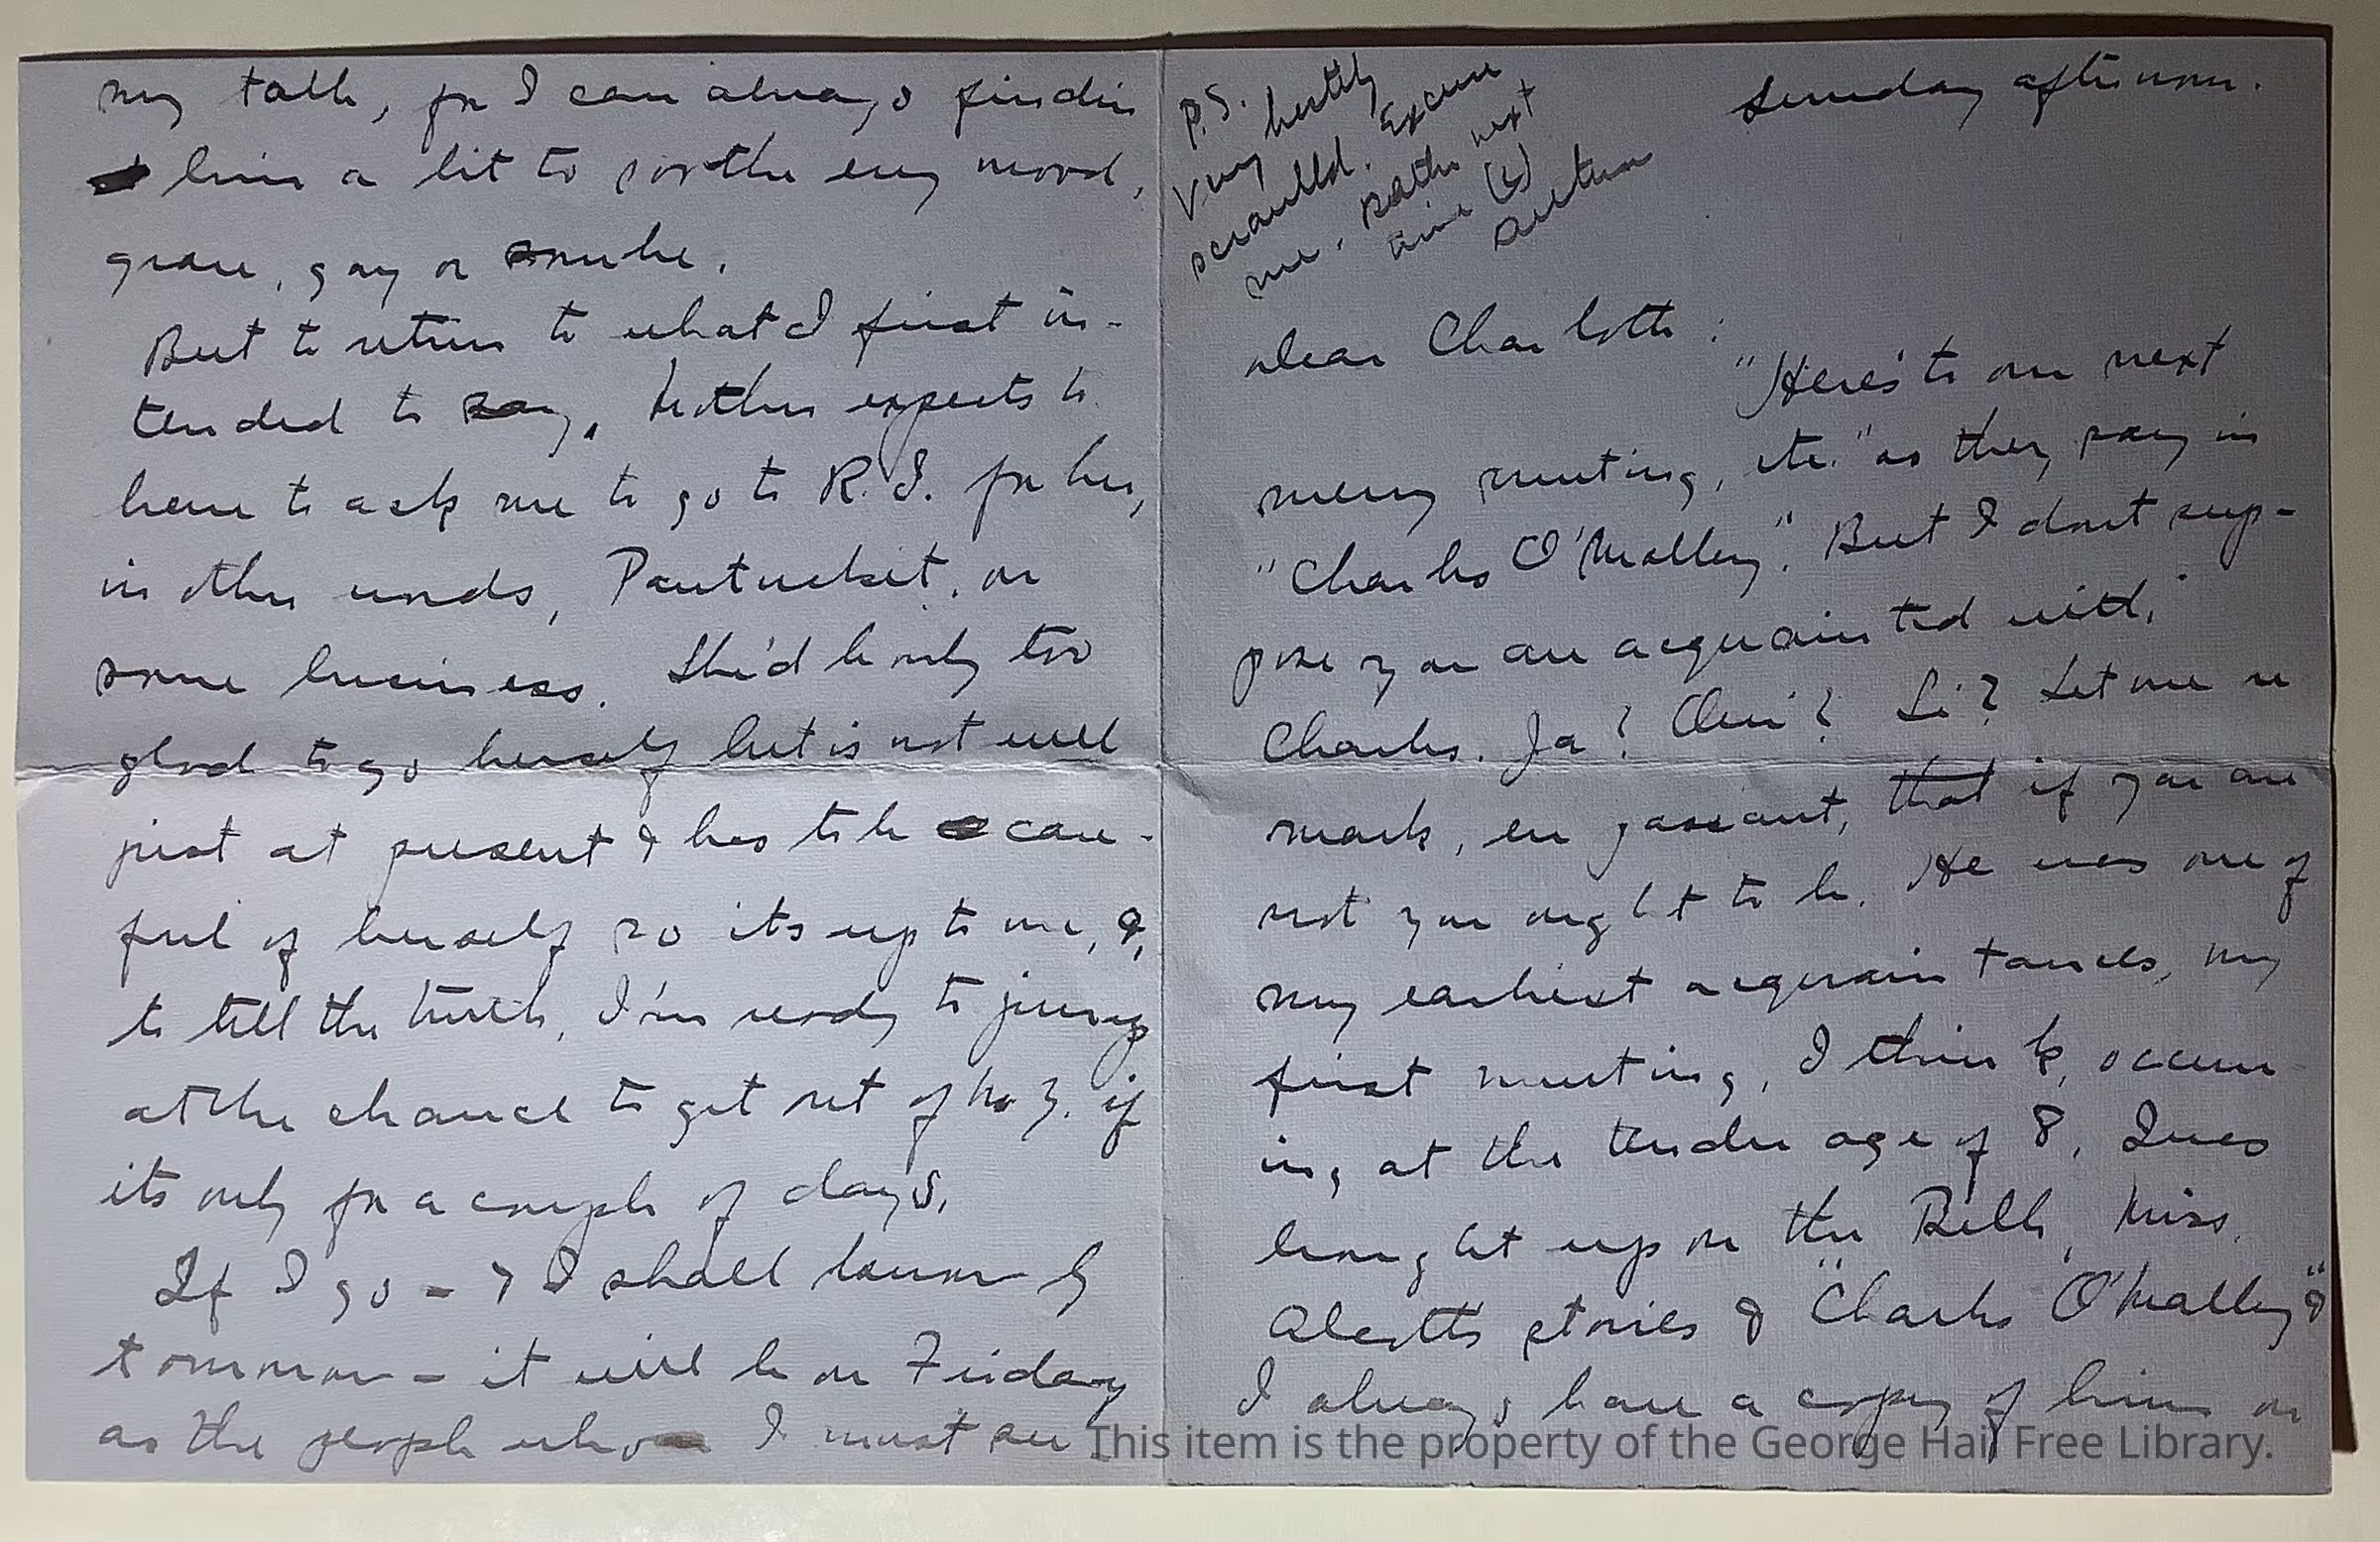 Sunday afternoon.
P.S.
Very hastily
scrawled. Excuse
me. Rather next
time (s)
Dear Charlotte:
"Here's to our next
merry meeting, etc." as they say in
"Charles O'Malley". But I dont sup-
pose you are acquainted with
Charles. Ja? Oui? Si? Let me re
mark, en passant, that if you are
not you ought to be. He was one of
my earliest acquaintances, my
first meeting, I think, occurr
ing at the tender age of 8. I was
brought up on the Bible, Miss.
Alcotts stories & "Charles O'Malley" &
I always have a copy of him on
my table, for I can always find in
him a bit to soothe my mood,
grave, gay or sombre.
But to return to what I first in-
tended to say. Mother expects to
have to ask me to go to R.I. for her,
in other words, Pawtucket, on
some business. She'd be only too
glad to go herself but is not well
just at present & has to be care-
ful of herself so its up to me, &,
to tell the truth, I'm ready to jump
at the chance to get out of N.Y. if
its only for a couple of days.
If I go - & I shall know by
tomorrow - it will be on Friday
as the people who I must see
This item is the property of the George Hail Free Library.